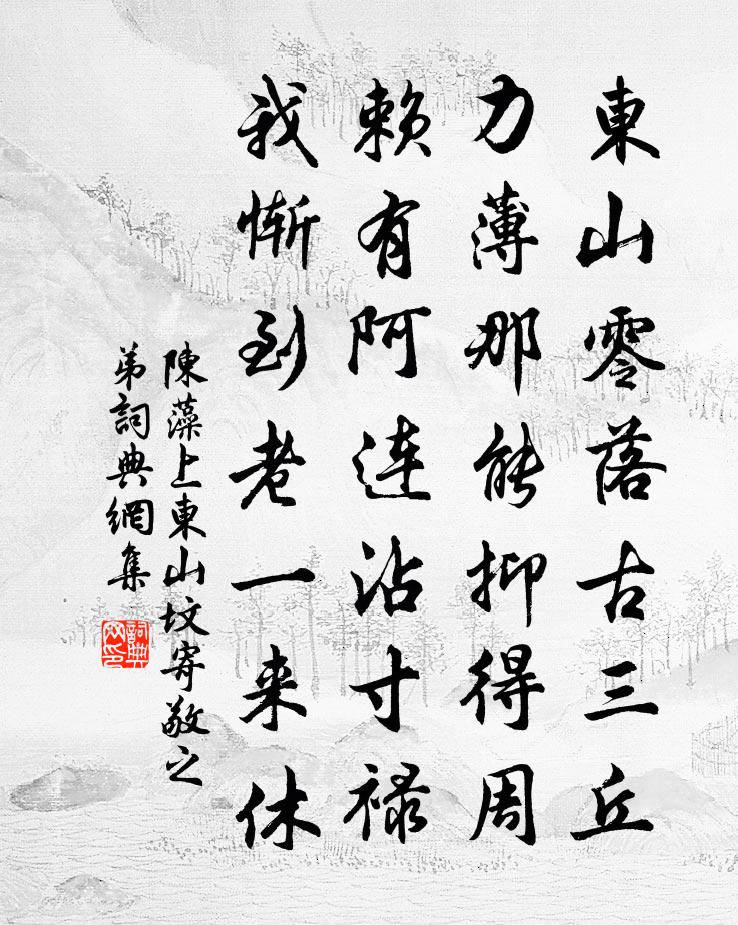 東山零落古三丘
力薄那能抑得周
赖有阿连沾寸禄
我惭到老一来休
陳藻上東山坟寄敬之
弟詞典網集
詞典網印